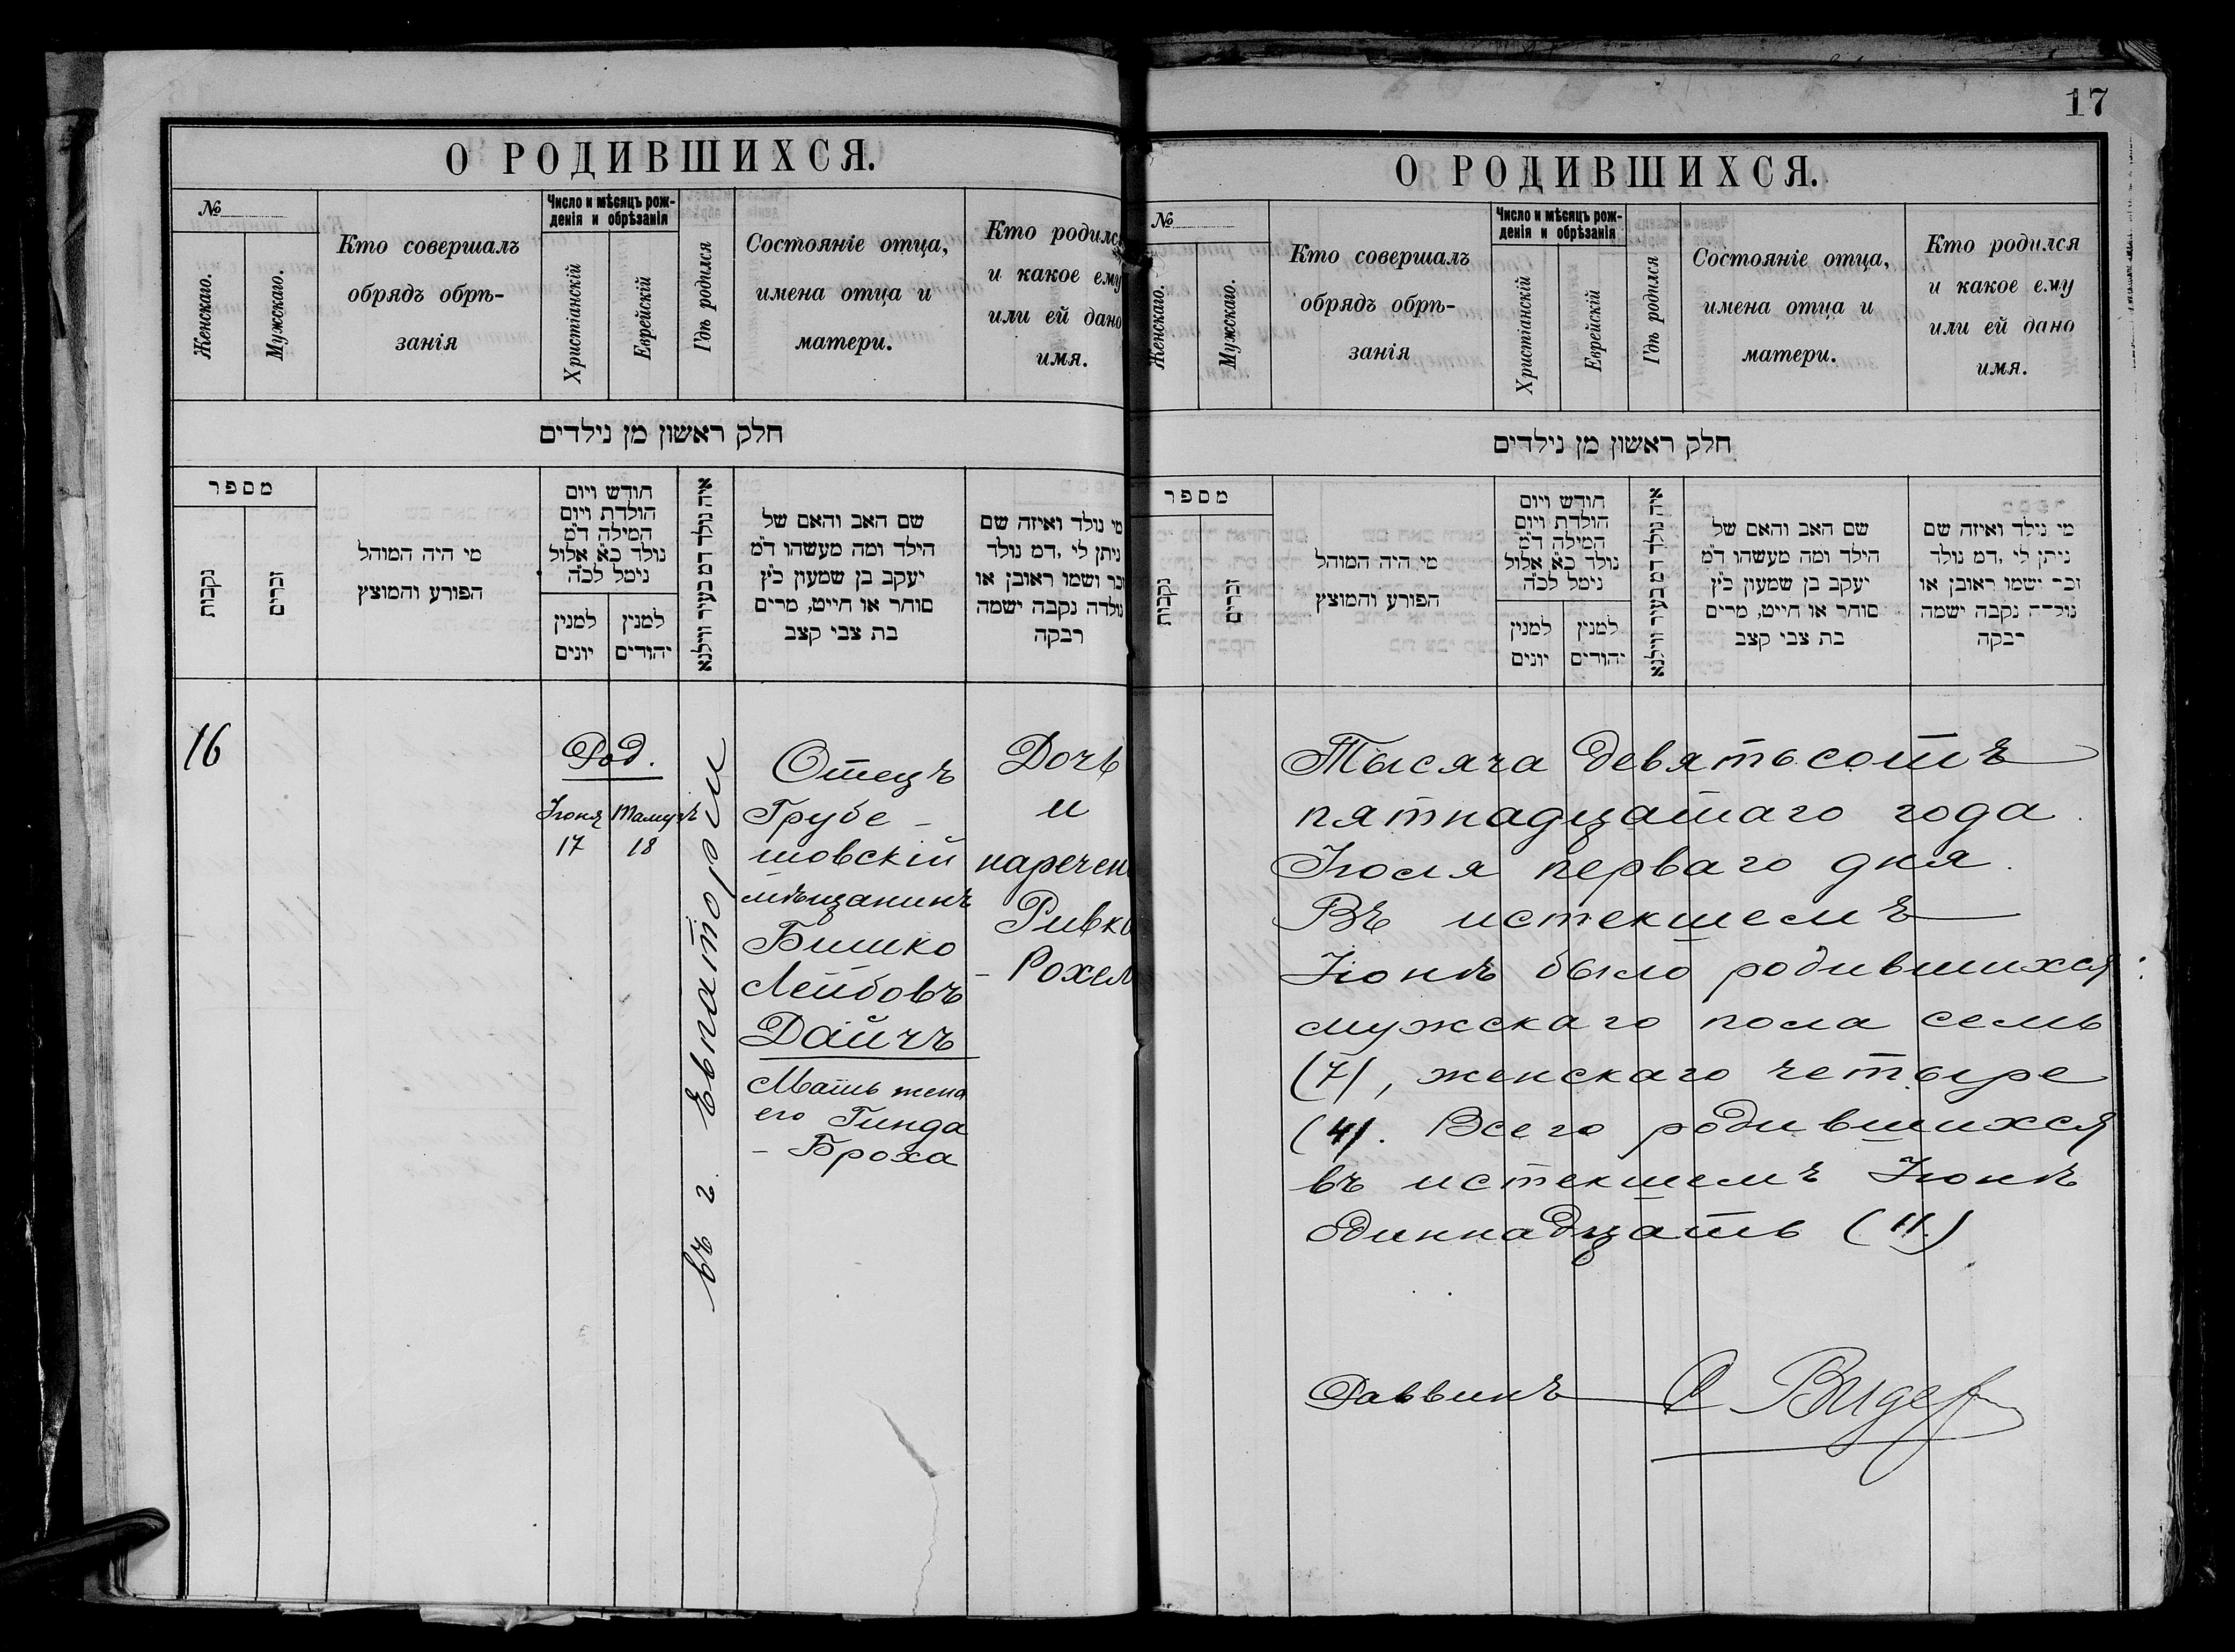 О РОДИВШИХСЯ.
№
Женскаго.
Мужскаго.
Кто совершалъ
обрядъ обрѣ-
занія
Число и мѣсяцъ рож-
денія и обрѣзанія
Христіанскій
Еврейскій
Гдѣ родился
Состояніе отца,
имена отца и
матери.
Кто родился
и какое ему
или ей дано
имя.
חלק ראשון מן נילדים
מספר
נקבות
זכרים
מי היה המוהל
הפורע והמוצץ
חודש ויום
הולדת ויום
המילה ד״מ
נולד כ״א אלול
נימל לכ״ה
למנין
יונים
למנין
יהודים
איה נולד דמ בעיר ווילנא
שם האב והאם של
הילד ומה מעשהו ד״מ
יעקב בן שמעון כ״ץ
סוחר או חייט, מרים
בת צבי קצב
מי נולד ואיזה שם
ניתן לי ,דמ נולד
זכר ושמו ראובן או
נולדה נקבה ישמה
רבקה
16
Род.
Іюня
17
Тамузъ
18
въ г. Евпаторіи
Отецъ
Грубе-
шовскій
мѣщанинъ
Бишко
Лейбовъ
Дайчъ
Мать жена
его Гинда
- Броха
Дочь
и
наречен
Ривка
- Рохел
17
О РОДИВШИХСЯ.
№
Женскаго.
Мужскаго.
Кто совершалъ
обрядъ обрѣ-
занія
Число и мѣсяцъ рож-
денія и обрѣзанія
Христіанскій
Еврейскій
Гдѣ родился
Состояніе отца,
имена отца и
матери.
Кто родился
и какое ему
или ей дано
имя.
חלק ראשון מן נילדים
מספר
נקבות
זכרים
מי היה המוהל
הפורע והמוצץ
חודש ויום
הולדת ויום
המילה ד״מ
נולד כ״א אלול
נימל לכ״ה
למנין
יונים
למנין
יהודים
איה נולד דמ בעיר ווילנא
שם האב והאם של
הילד ומה מעשהו ד״מ
יעקב בן שמעון כ״ץ
סוחר או חייט, מרים
בת צבי קצב
מי נילד ואיזה שם
ניתן לי ,דמ נולד
זכר ישמו ראובן או
נולדה נקבה ישמה
רבקה
Тысяча девятьсотъ
пятнадцатаго года
Іюля перваго дня.
Въ истекшемъ
Іюнѣ было родившихся:
мужскаго пола семь
(7), женскаго четыре
(4). Всего родившихся
въ истекшемъ Іюнѣ
Одиннадцать (11.)
Раввинъ